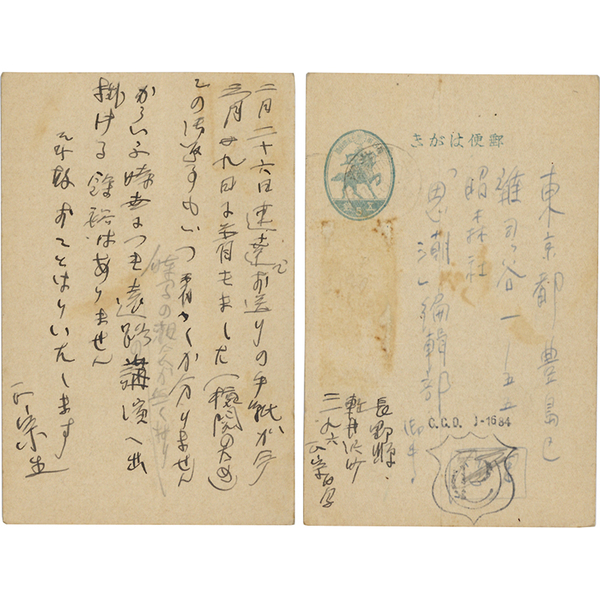 二月二十六日速達でお送りの手紙が今
三月廿九日に着きました（検閲の為）
この御返事もいつ着くか分りません
からいふ時世につき遠路講演へ出
掛ける餘裕はありません
おことはりいたします
郵便はがき
東京都豊島区
雑司ヶ谷一ノ五五
昭森社
「思潮」編輯部
御中
長野県
軽井沢町
三一九六
C.C.D. J-1684